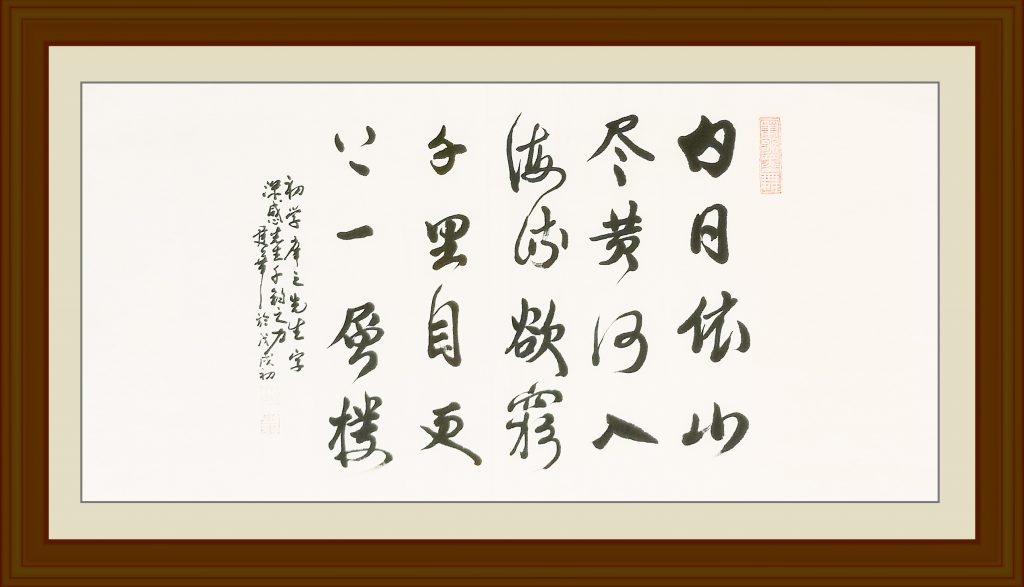 白日依山
尽黄河入
海流欲穷
千里目更
上一层楼
初学之先生字
深感先生千钧之力
於戊戌初